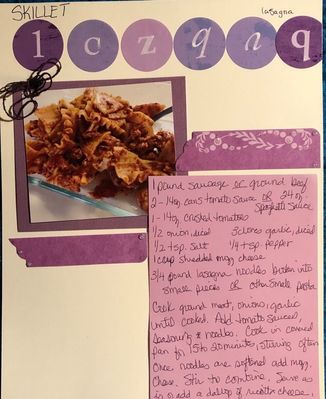 SKILLET
lasagna
l c z q n q
1 pound sausage or ground beef
2 - 14oz cans tomato sauce OR 24 oz
Spaghetti Sauce
1 - 14oz crushed tomatoes
1/2 onion, diced 3 cloves garlic, diced
1/2 tsp. salt 1/4 tsp. pepper
1 cup shredded mozz cheese
3/4 pound lasagna noodles broken into
small pieces OR other small pasta
Cook ground meat, onions, garlic
until cooked. Add tomato sauces,
seasoning & noodles. Cook in covered
pan for 15 to 20 minutes, stirring often
Once noodles are softened add mozz
cheese. Stir to combine. Serve as
is or add a dollop of ricotta cheese,